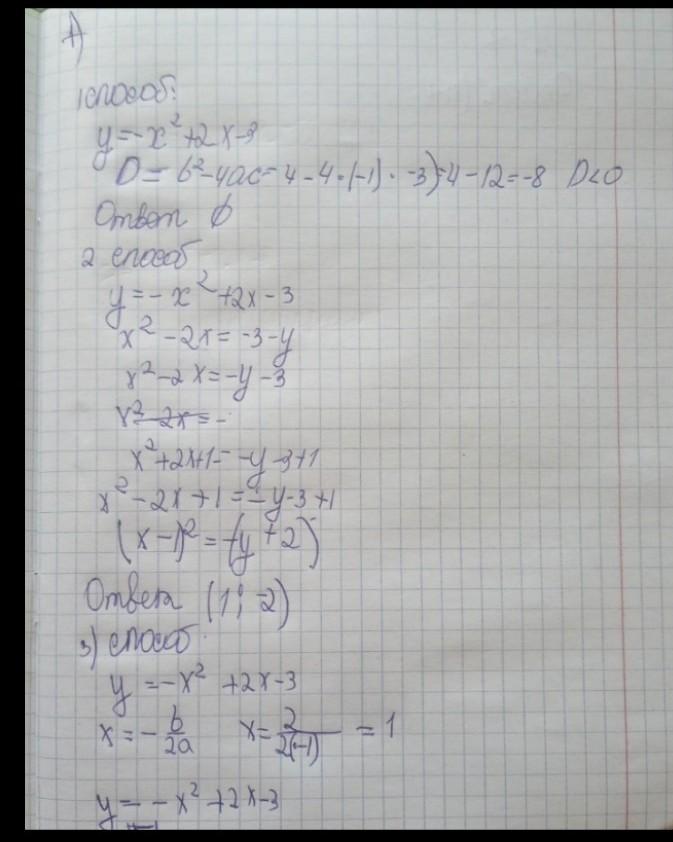 A)
1 способ:
y=-x²+2x-3
D= b²-4ac=4-4·(-1)·-3)=4-12=-8 D<0
Ответ ∅
2 способ
y=-x²+2x-3
x²-2x=-3-y
x²-2x=-y-3
x²-2x=-
x²+2x+1=-y-3+1
x²-2x+1=-y-3+1
(x-1)²=-(y+2)
Ответ (1; -2)
3) способ
y=-x²+2x-3
x=-b/2a x=2/2(-1) =1
y=-x²+2x-3